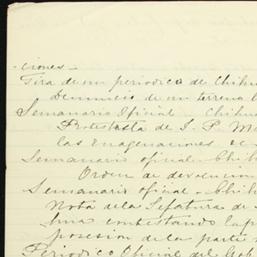 ciones –
Tira de un periodico de Chihu
Denuncio de un terreno
Semanario Oficial Chihu
Protesta de J. P. M
las enagenaciones
Semanario oficial – Chih
Orden de devolucion
Semanario oficial – Chih
Nota de la Jefatura de
hua contestando la p
posesion de la parte
Periodico Oficial del Gob